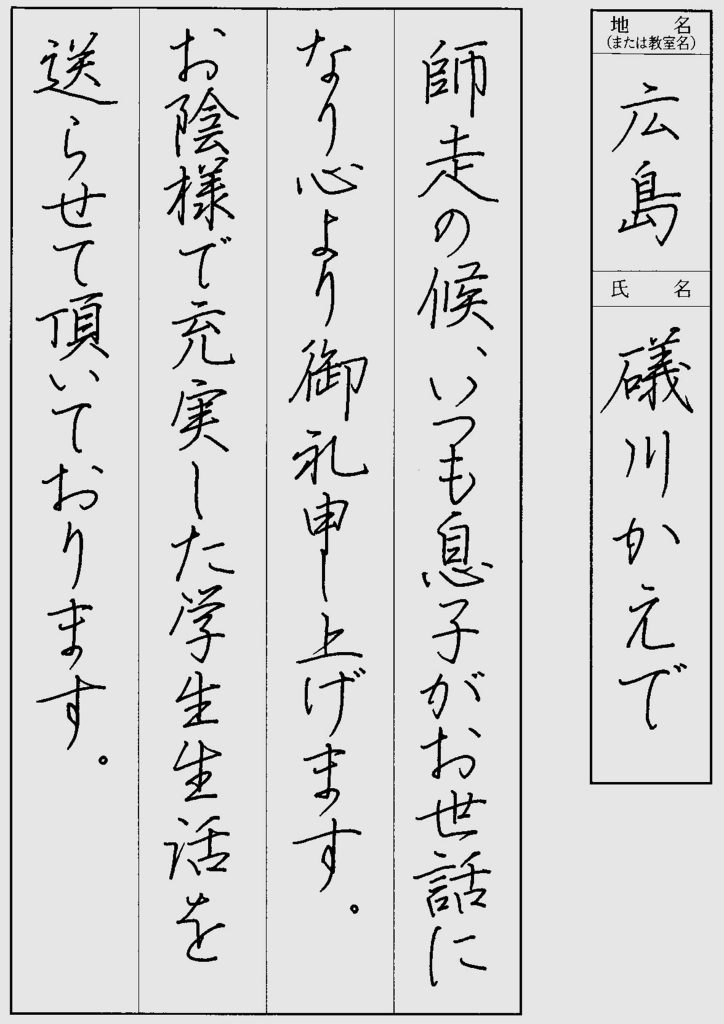 地名
(または教室名)
広島
氏名
礒川かえで
師走の候、いつも息子がお世話に
なり心より御礼申し上げます。
お陰様で充実した学生生活を
送らせて頂いております。